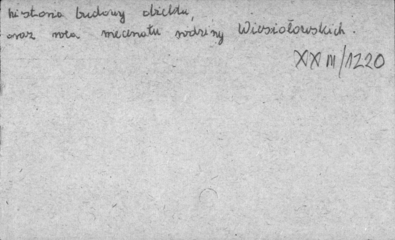 historia budowy obiektu,
oraz rola mecenatu rodziny Wiesiołowskich.
XXIII/1220